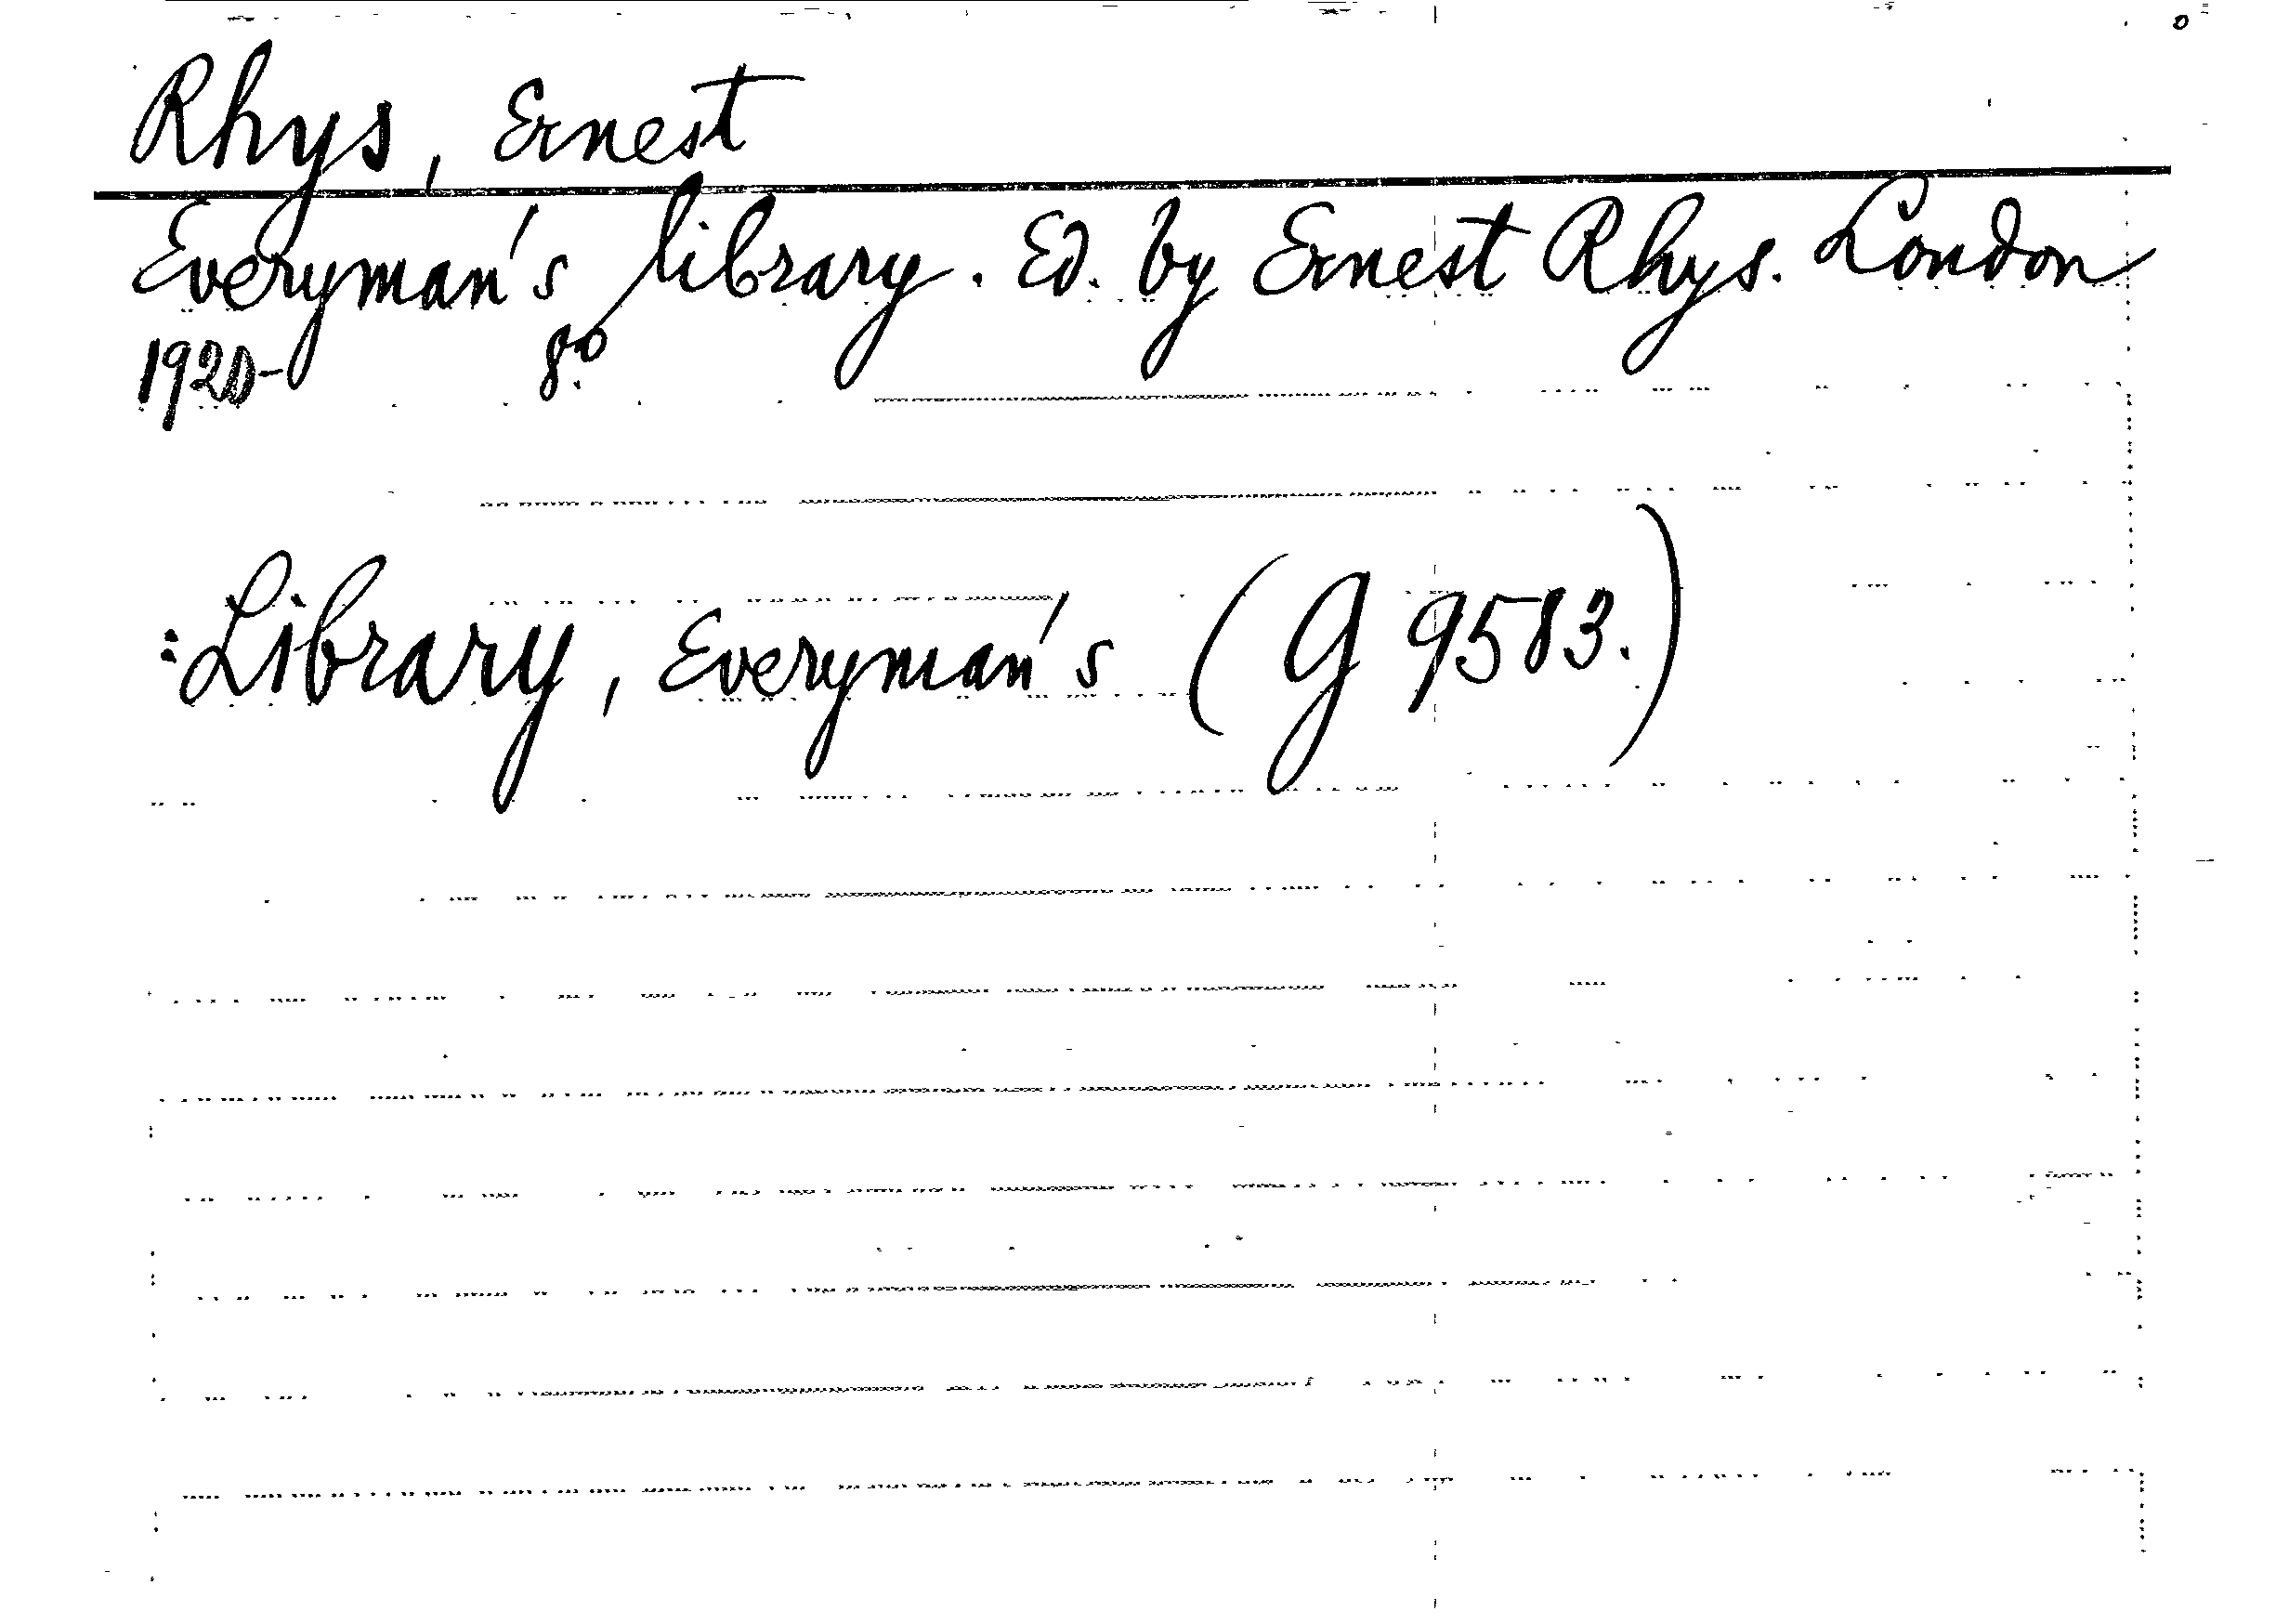 Rhys, Ernest
Everyman's library. Ed. by Ernest Rhys. London
1920- 8:o
:Library, Everyman's (G 9583.)